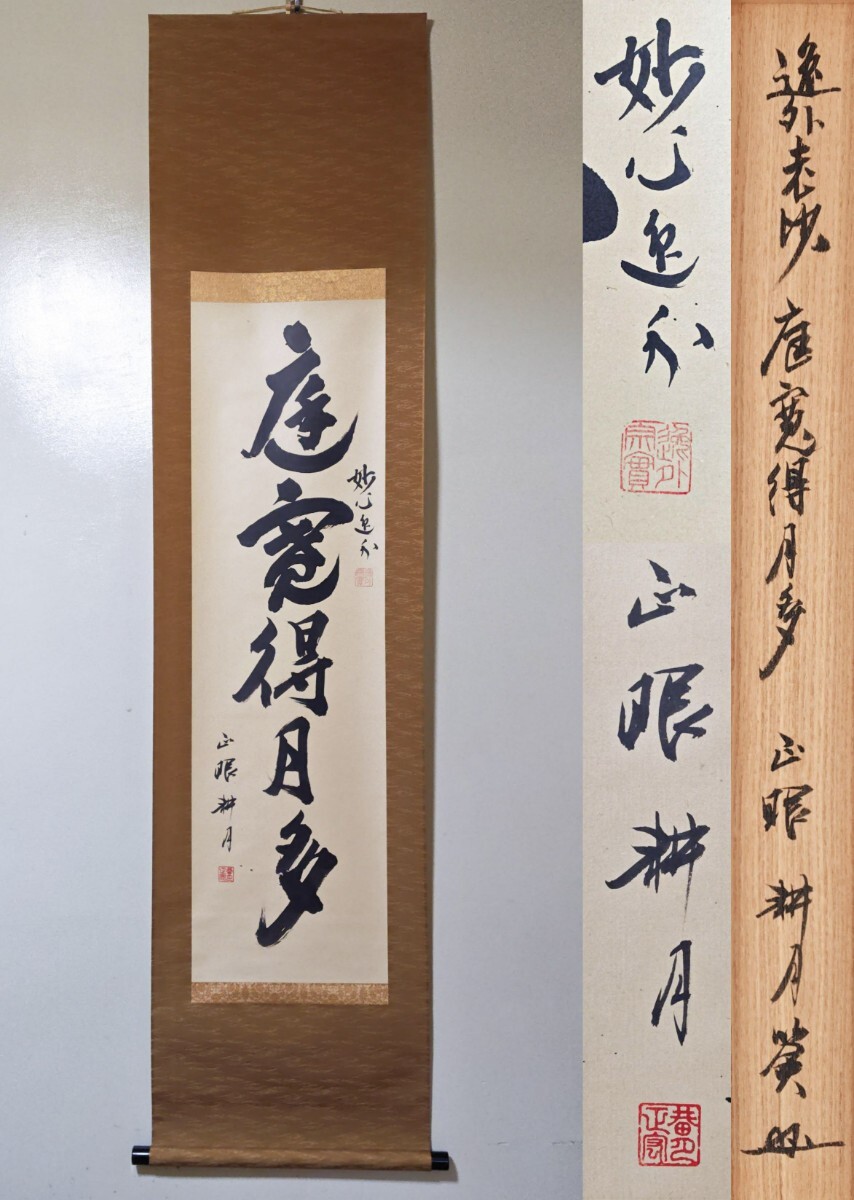 庭寛得月多
妙心逸外
正眼耕月
妙心逸外
逸外宗實
正眼耕月
逸外老師 庭寛得月多 正眼 耕月